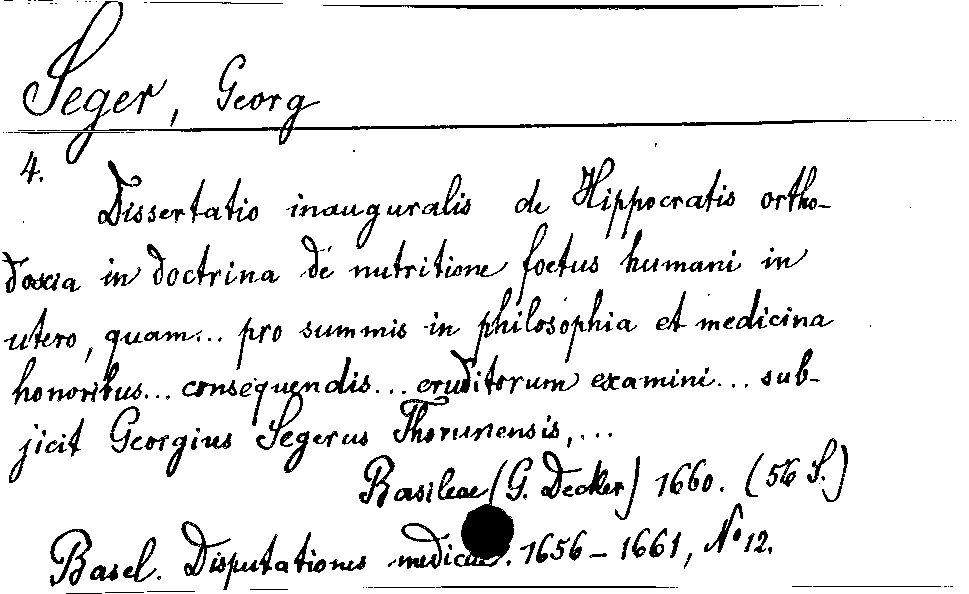 Seger, Georg
4.
Dissertatio inauguralis de Hippocratis ortho-
doxia in doctrina de nutritione foetus humani in
utero, quam... pro summis in philosophia et medicina
honoribus... consequendis... eruditorum examini... sub-
jicit Georgius Segerus Thorunensis,...
Basileae (G. Decker) 1660. (56 S.)
Basel. Disputationes medicae. 1656 - 1661, No 12.